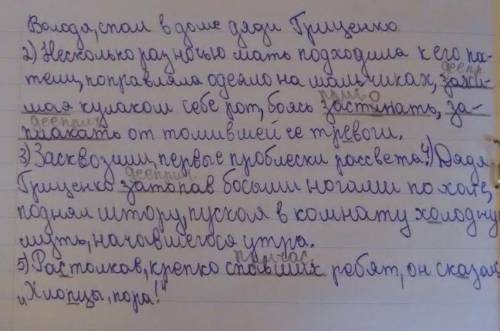 Володя, спал в доме дяди Гриценко.
2) Несколько раз ночью мать подходила к его па-
дееприч
тели, поправляла одеяло на мальчиках, зажи-
прич о
мая кулаком себе рот, боясь застынать, за-
дееприч
плакать от томившей её тревоги.
3) Засквозили, первые проблески рассвета. 4) Дядя
дееприч
Гриценко затопав босыми ногами по хате,
поднял штору, пуская в комнату холодну
муть, начавшегося утра.
причас
5) Растолкав, крепко спавших ребят, он сказал
„Хлопцы, пора!"